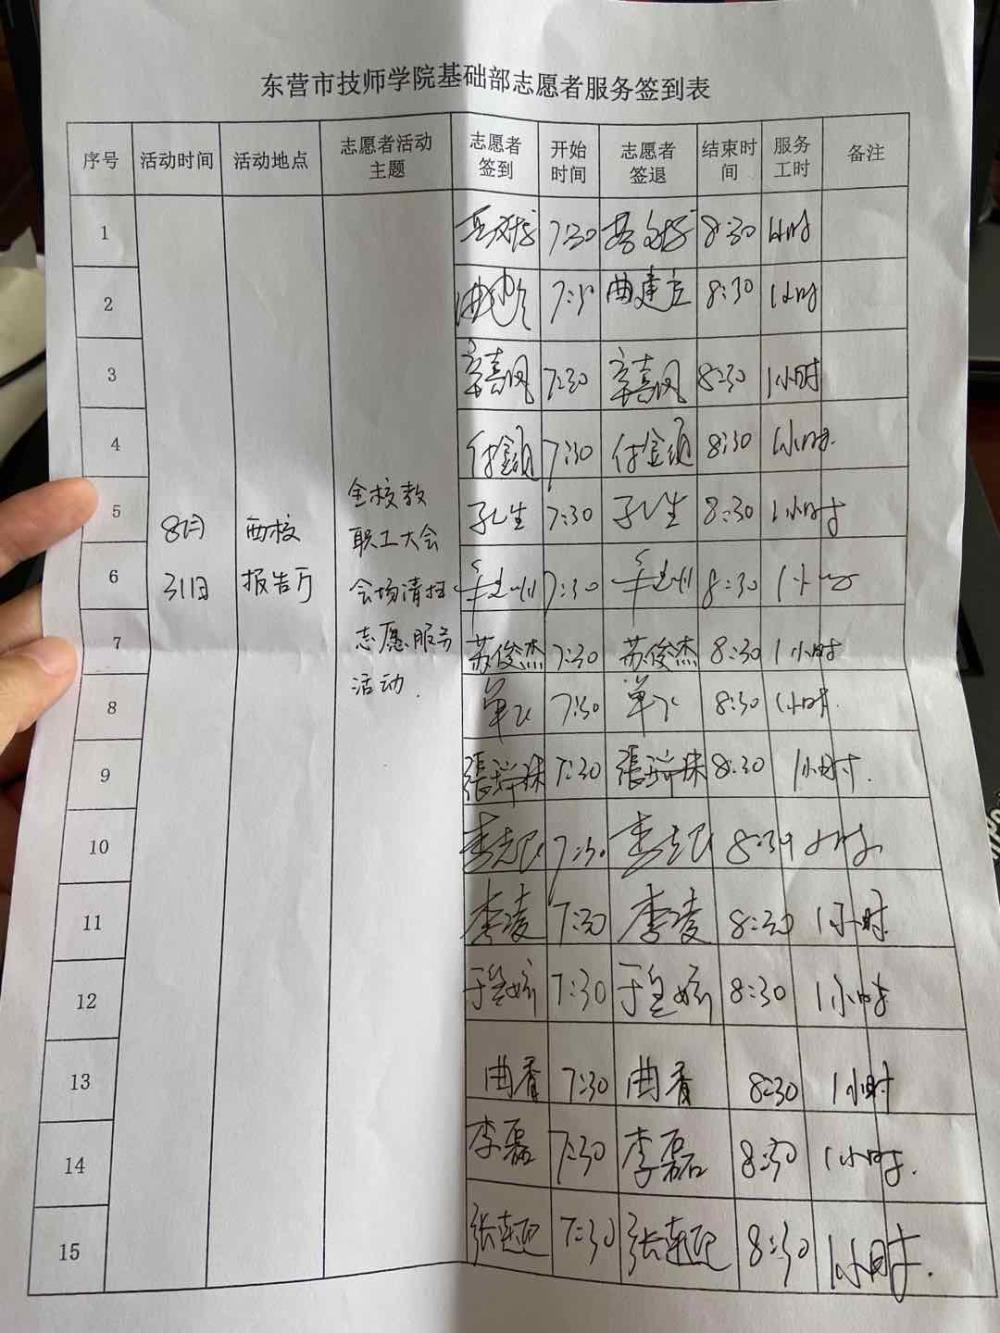 东营市技师学院基础部志愿者服务签到表
序号 活动时间 活动地点 志愿者活动主题 志愿者签到 开始时间 志愿者签退 结束时间 服务工时 备注
8月31日 西校报告厅
全校教
职工大会
会场清扫
志愿服务
活动.
1 7:30 8:30 1小时
2 曲建立 8:30 1小时
3 辛喜凤 7:30 辛喜凤 8:30 1小时
4 7:30 8:30 1小时.
5 孔生 7:30 孔生 8:30 1小时
6 7:30 8:30 1小时
7 苏俊杰 7:30 苏俊杰 8:30 1小时
8 单飞 7:30 单飞 8:30 1小时.
9 張瑞珠 7:30 張瑞珠 8:30 1小时.
10 7:30 8:30 1小时
11 李凌 7:30 李凌 8:30 1小时.
12 7:30 8:30 1小时
13 曲香 7:30 曲香 8:30 1小时
14 李磊 7:30 李磊 8:30 1小时.
15 7:30 8:30 1小时.